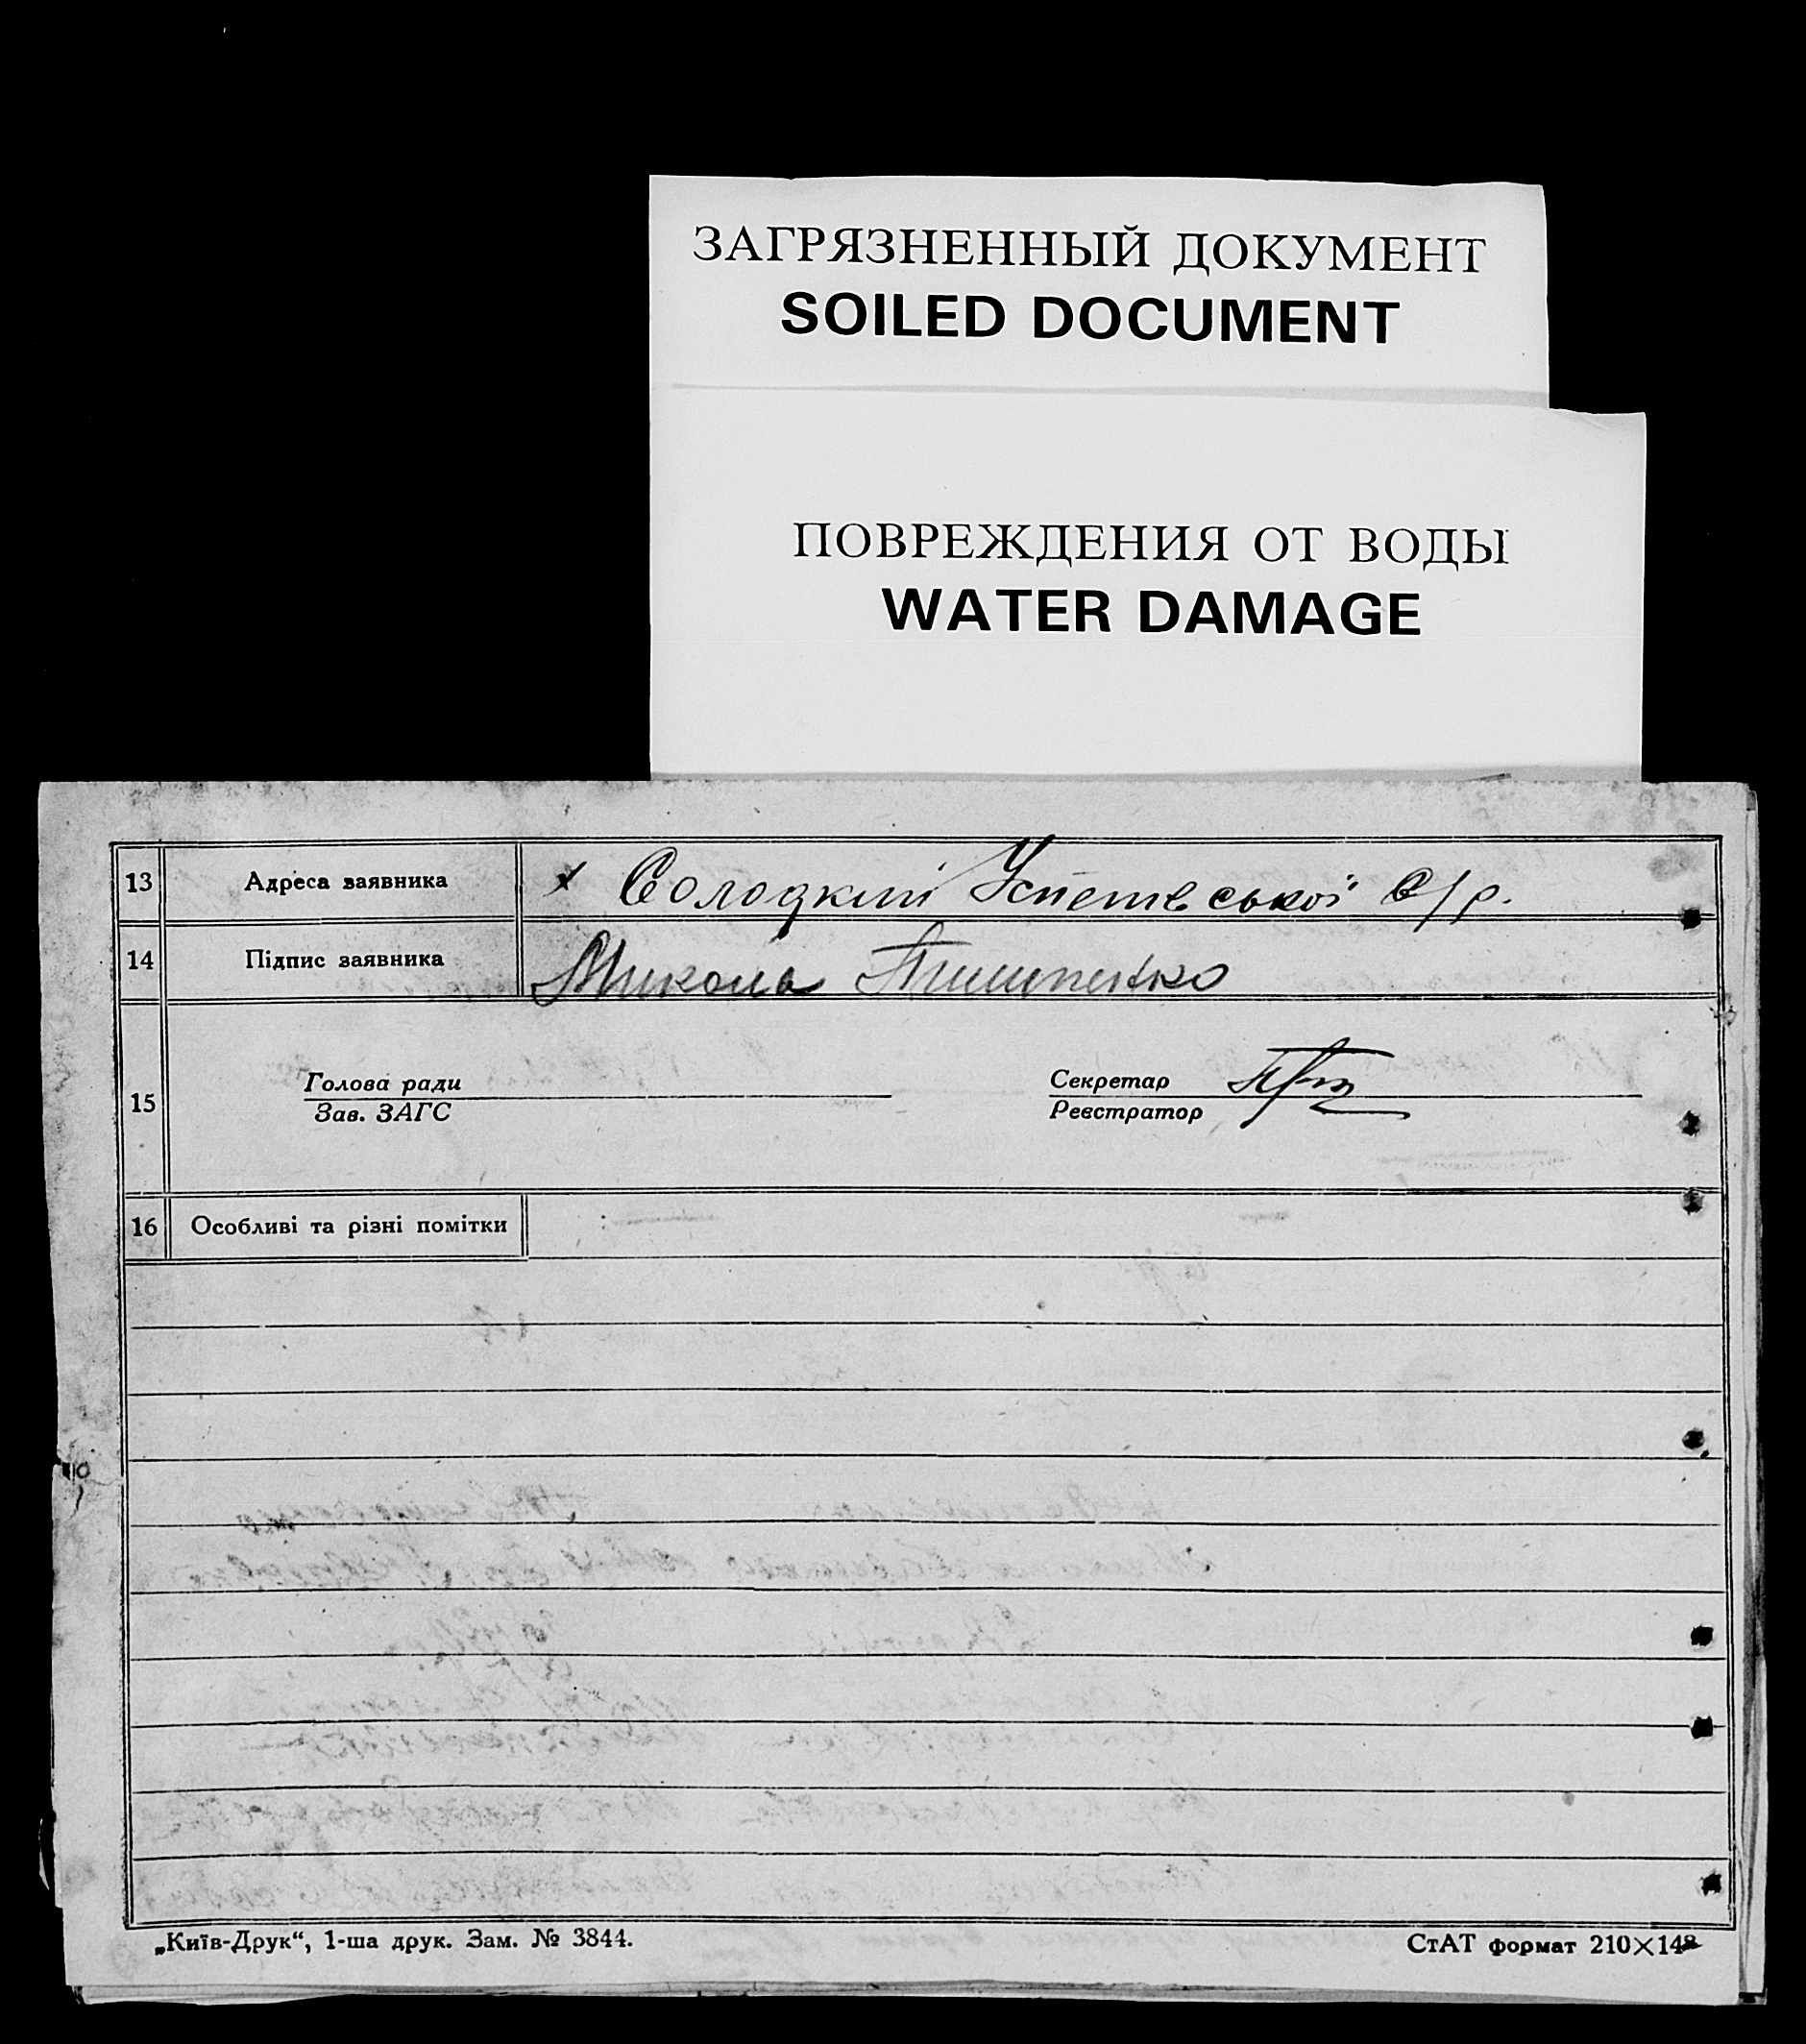 ЗАГРЯЗНЕННЫЙ ДОКУМЕНТ
SOILED DOCUMENT
ПОВРЕЖДЕНИЯ ОТ ВОДЫ
WATER DAMAGE
13 Адреса заявника х Солодкий С/р.
14 Підпис заявника Микола
15 Голова ради Секретар
Зав. ЗАГС Реєстратор
16 Особливі та різні помітки
„Київ-Друк“, 1-ша друк. Зам. № 3844.
СтАТ формат 210×148